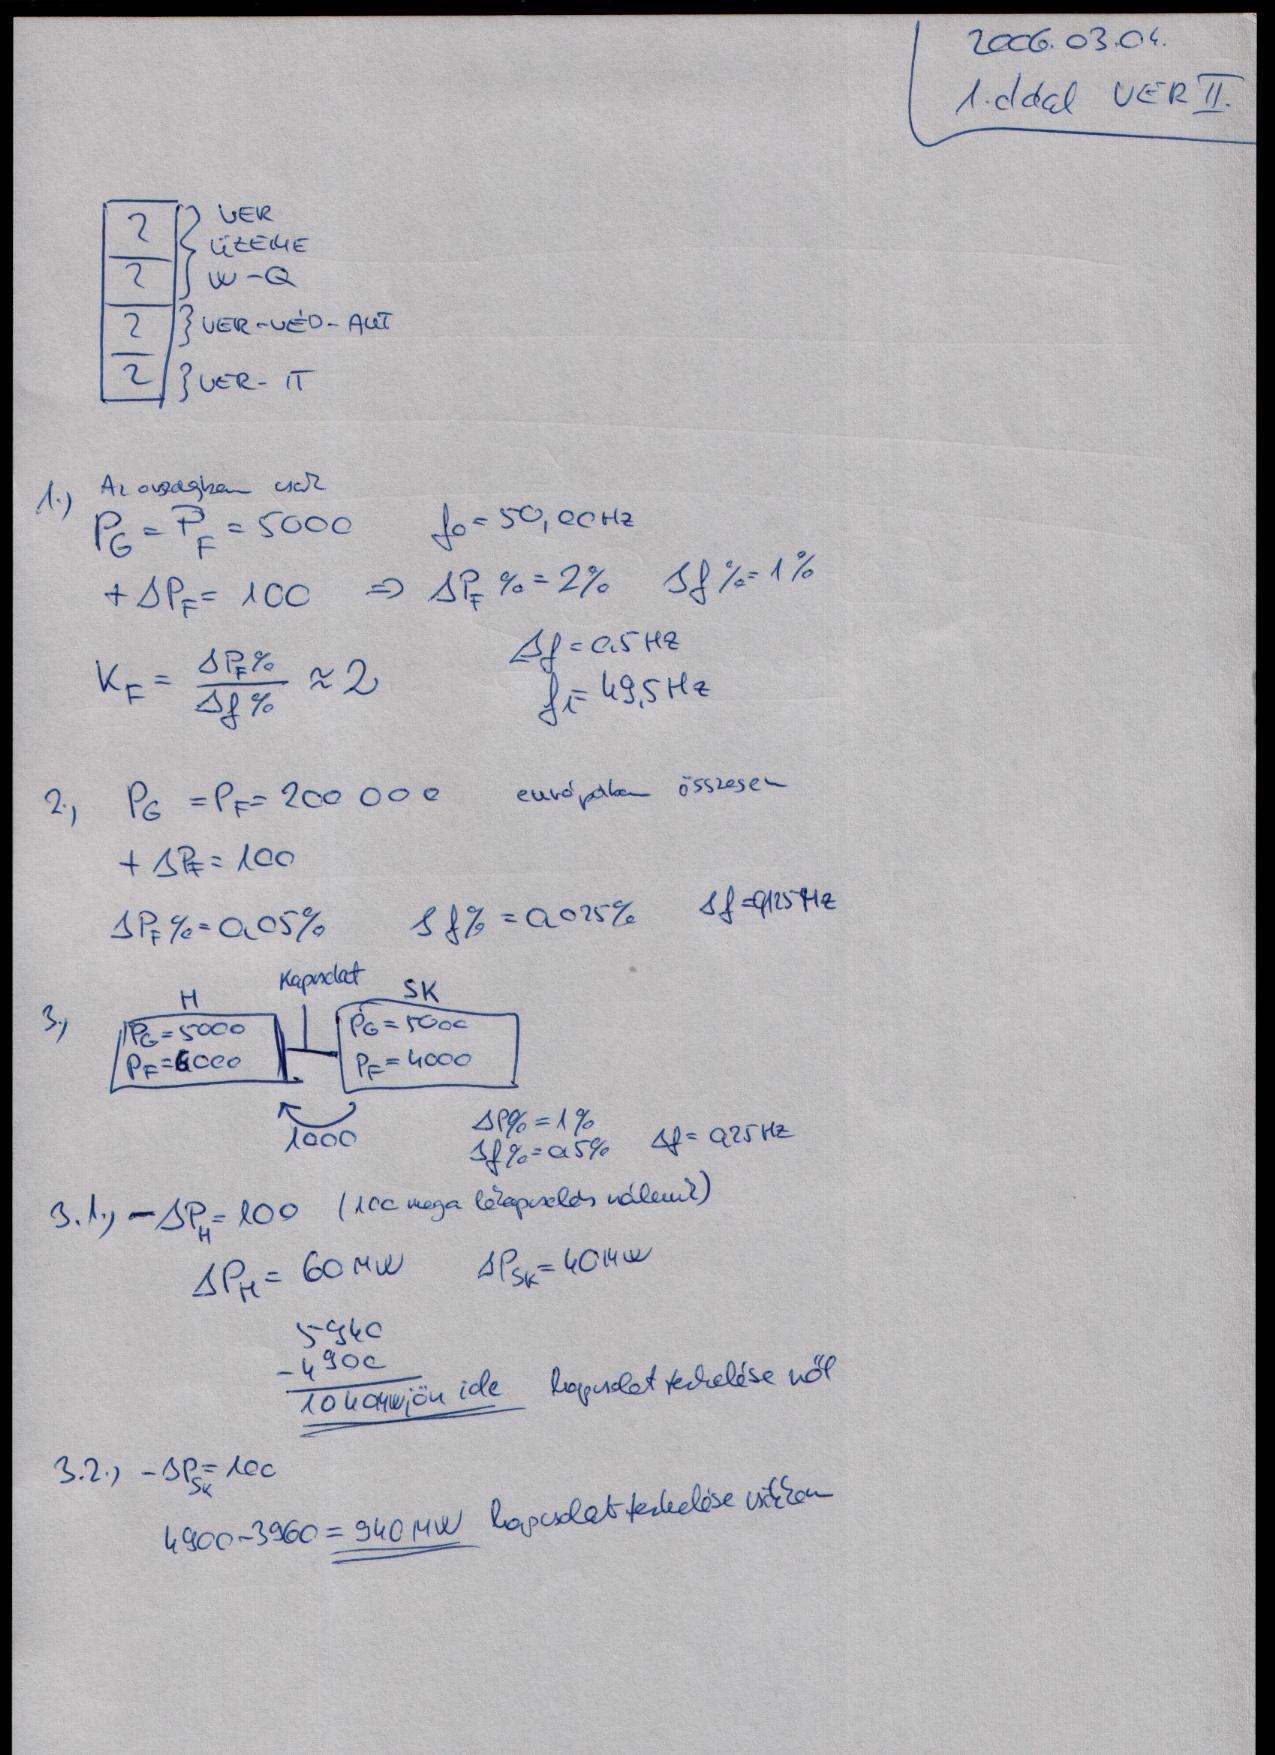 2006.03.04.
1. oldal VER II.
2 } VER
ÜZEME
2 } W-Q
2 } VER-VÉD-AUT
2 } VER-IT
1.) Az országban csak
P_G = P_F = 5000 f_0 = 50,00 Hz
+ ΔP_F = 100 ⇒ ΔP_F % = 2% Δf % = 1%
Δf = 0,5 Hz
K_F = ΔP_F % / Δf % ≈ 2
f_1 = 49,5 Hz
2.) P_G = P_F = 200 000 európában összesen
+ ΔP_F = 100
ΔP_F % = 0,05% Δf % = 0,025% Δf = 0,125 Hz
3.) H Kapcsolat SK
P_G = 5000 P_G = 5000
P_F = 6000 P_F = 4000
1000
ΔP% = 1%
Δf% = 0,5% Δf = 0,25 Hz
3.1.) - ΔP_H = 100 (100 mega lekapcsolás nálunk)
ΔP_H = 60 MW ΔP_SK = 40 MW
5940
- 4900
1040 MW jön ide kapcsolat terhelése nő
3.2.) - ΔP_SK = 100
4900 - 3960 = 940 MW kapcsolat terhelése csökken